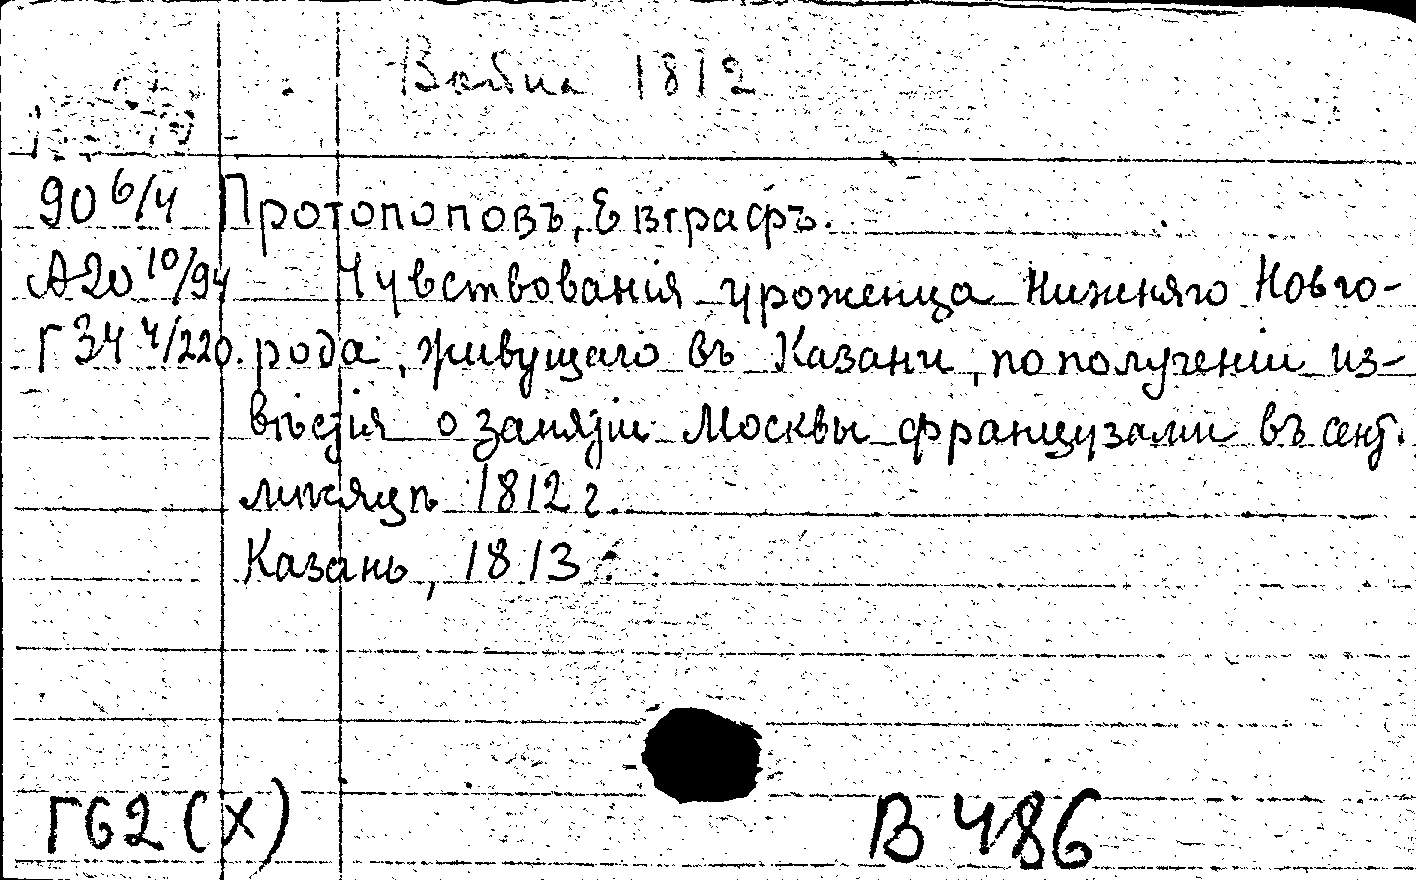 Война 1812
90 6/4 Протопоповъ, Евграфъ.
А20 10/94 Чувствованія уроженца Нижняго Новго-
Г34 4/220. рода, живущаго въ Казани, по полученіи из-
вѣстія о занятіи Москвы французами въ сент.
мѣсяцѣ 1812 г.
Казань, 1813
Г62(х) В 486